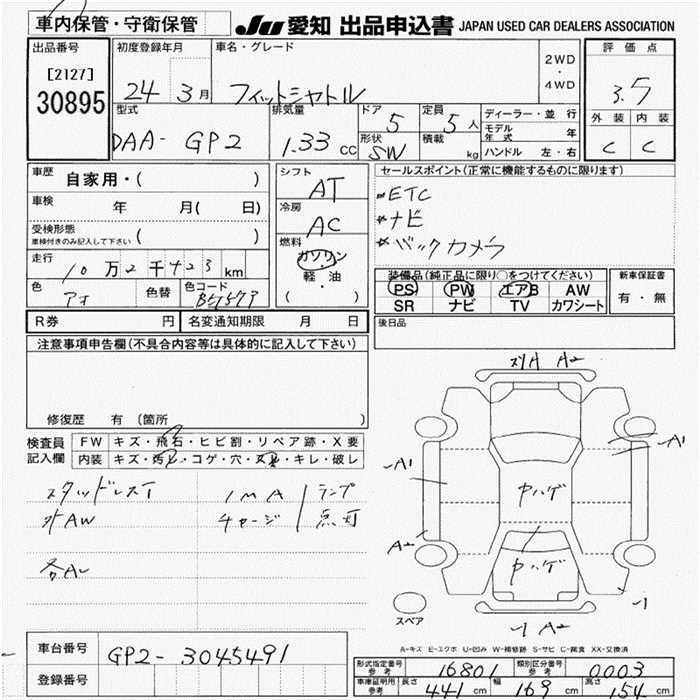 車内保管・守衛保管 JU 愛知 出品申込書 JAPAN USED CAR DEALERS ASSOCIATION
出品番号 初度登録年月 車名・グレード 2WD・4WD 評価点
[2127] 30895 24 3月 フィットシャトル 3.5
型式 排気量 ドア 5 定員 5人 ディーラー・並行 外装 内装
DAA- GP2 1.33 cc 形状 SW 積載 kg モデル年式 年 C C
ハンドル 左・右
車歴 自家用・( ) シフト AT セールスポイント(正常に機能するものに限ります)
車検 年 月( 日) 冷房 AC ETC
受検形態 車検付きのみ記入して下さい ( ) ナビ
燃料 ガソリン 軽・油 ( ・ ) バックカメラ
走行 10万2千423km 装備品(純正品に限り○をつけてください) 新車保証書
色 アオ 色替 色コード PS PW エアB AW 有・無
SR ナビ TV カワシート
R券 円 名変通知期限 月 日 後日品
注意事項申告欄(不具合内容等は具体的に記入して下さい)
修復歴 有 (箇所 )
検査員記入欄 FW キズ・飛石・ヒビ割・リペア跡・X要
内装 キズ・汚レ・コゲ・穴・ス臭・キレ・破レ
スタッドレスT IMA ランプ
外AW チャージ 点灯
各A
スリA A2
-A1 -A1
中ハゲ
A2
中ハゲ
-1
スペア
-1 A2
A-キズ E-エクボ U-凹み W-補修跡 S-サビ C-腐食 XX-交換済
車台番号 GP2- 3045491
登録番号
形式指定番号 参考 16801 類別区分番号 参考 0003
車庫証明用 参考 長さ 441cm 幅 169cm 高さ 154cm